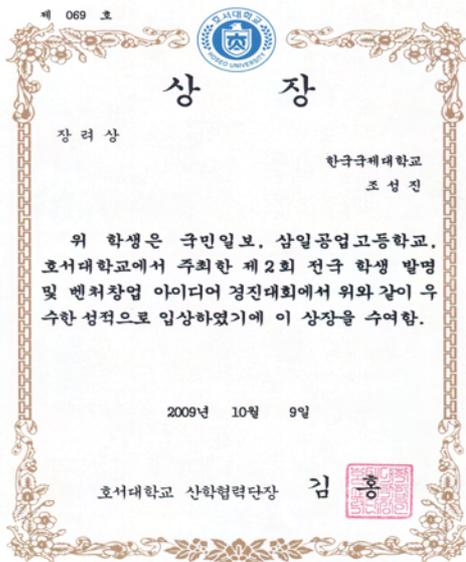 제 069 호
호서대학교
HOSEO UNIVERSITY
상 장
장 려 상
한국국제대학교
조 성 진
위 학생은 국민일보, 삼일공업고등학교,
호서대학교에서 주최한 제2회 전국 학생 발명
및 벤처창업 아이디어 경진대회에서 위와 같이 우
수한 성적으로 입상하였기에 이 상장을 수여함.
2009년 10월 9일
호서대학교 산학협력단장 김 홍